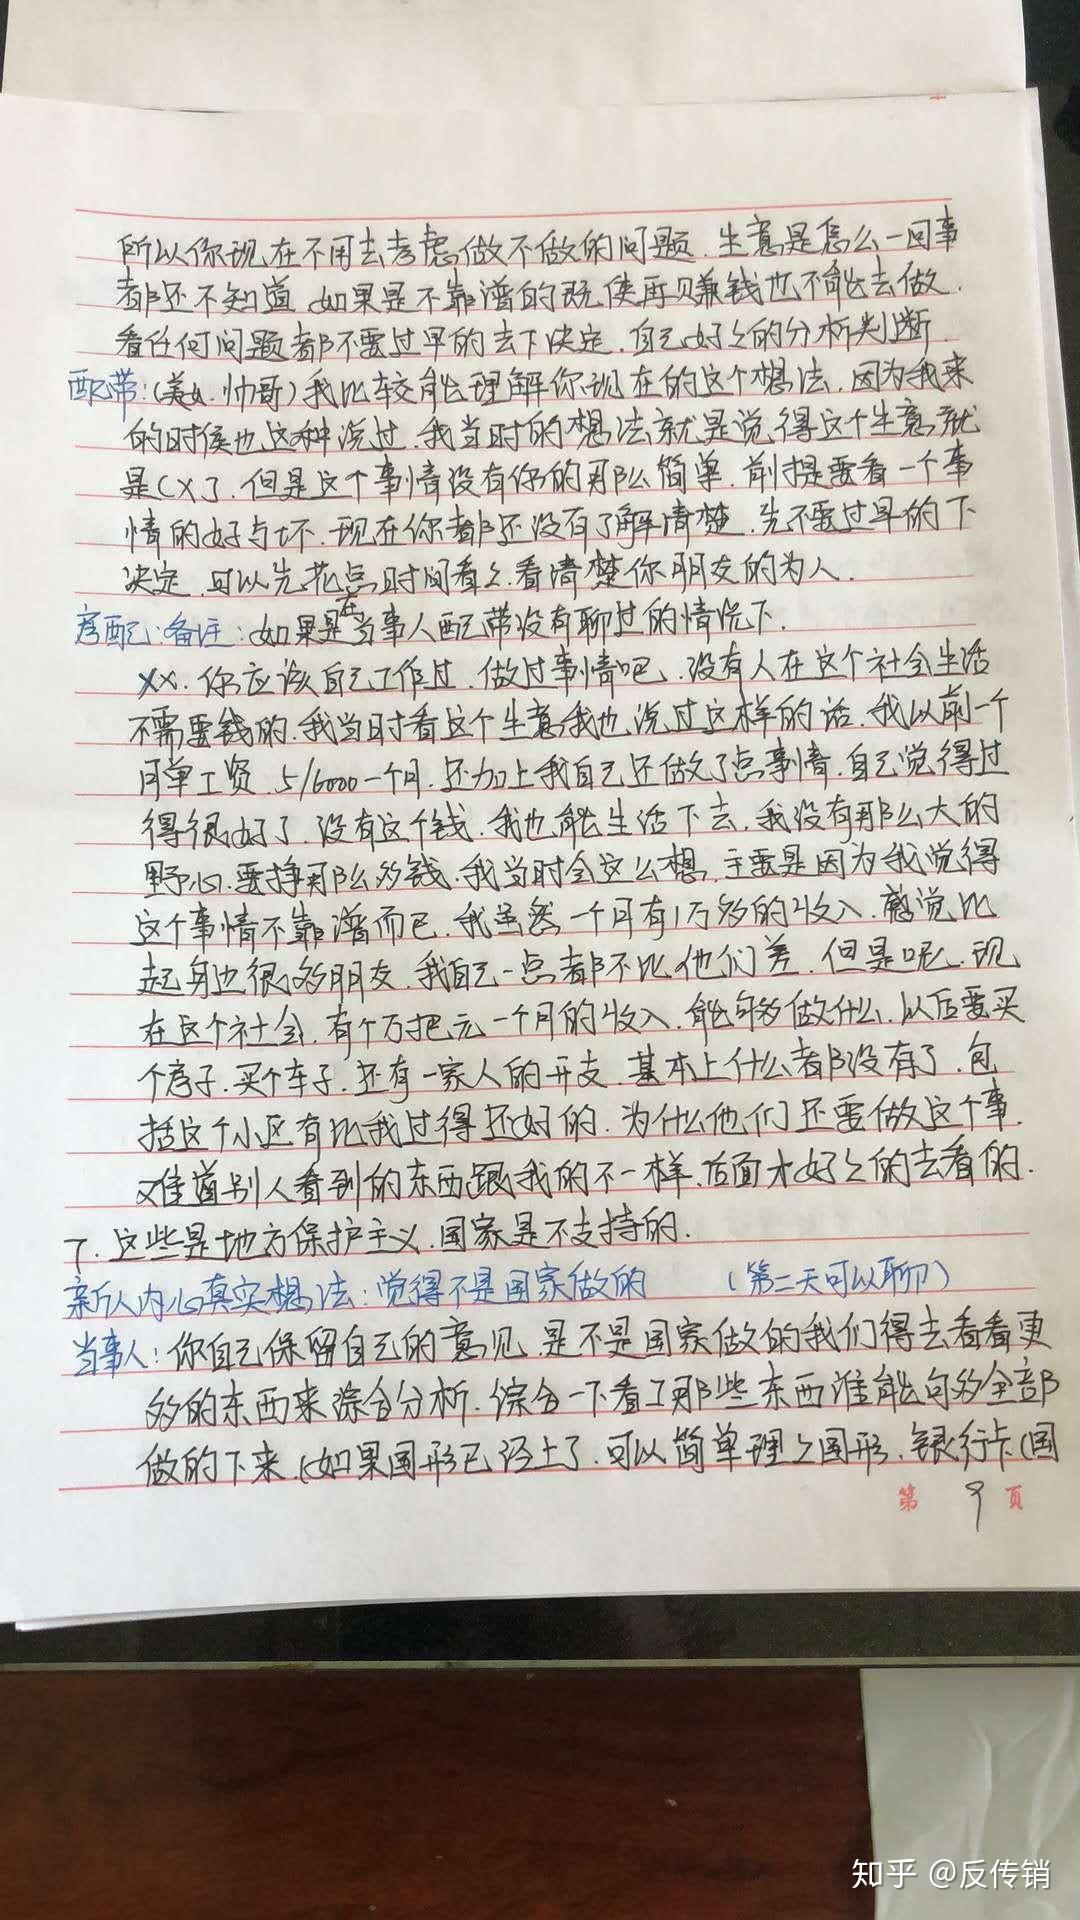 所以你现在不用去考虑做不做的问题.生意是怎么一回事
都还不知道.如果是不靠谱的既使再赚钱也不能去做.
看任何问题都不要过早的去下决定.自己好好的分析判断.
配带:(美女.帅哥)我比较能理解你现在的这个想法.因为我来
的时侯也这种说过.我当时的想法就是觉得这个生意就
是(×了.但是这个事情没有你的那么简单.前提要看一个事
情的好与坏.现在你都还没有了解清楚.先不要过早的下
决定.可以先花点时间看看.看清楚你朋友的为人.
考配:备注:如果是在当事人配带没有聊过的情况下.
××.你应该自己工作过.做过事情吧.没有人在这个社会生活
不需要钱的.我当时看这个生意我也说过这样的话.我以前一个
月单工资.5/6000一个月.还加上我自己还做了点事情.自己觉得过
得很好了.没有这个钱.我也能生活下去.我没有那么大的
野心.要挣那么多钱.我当时会这么想.主要是因为我觉得
这个事情不靠谱而已.我虽然一个月有1万多的收入.感觉比
起身边很多朋友.我自己一点都不比他们差.但是呢.现
在这个社会.有个万把元一个月的收入.能够做什么.以后要买
个房子.买个车子.还有一家人的开支.基本上什么都没有了.包
括这个小区有比我过得还好的.为什么他们还要做这个事.
难道别人看到的东西跟我的不一样.后面才好好的去看的.
7.这些是地方保护主义.国家是不支持的.
新人内心真实想法:觉得不是国家做的 (第二天可以聊)
当事人:你自己保留自己的意见.是不是国家做的我们得去看看更
多的东西来综合分析.综合一下看了那些东西谁能够全部
做的下来.(如果图形已经上了.可以简单理理图形.银行卡(国
第 9 頁
知乎 @反传销